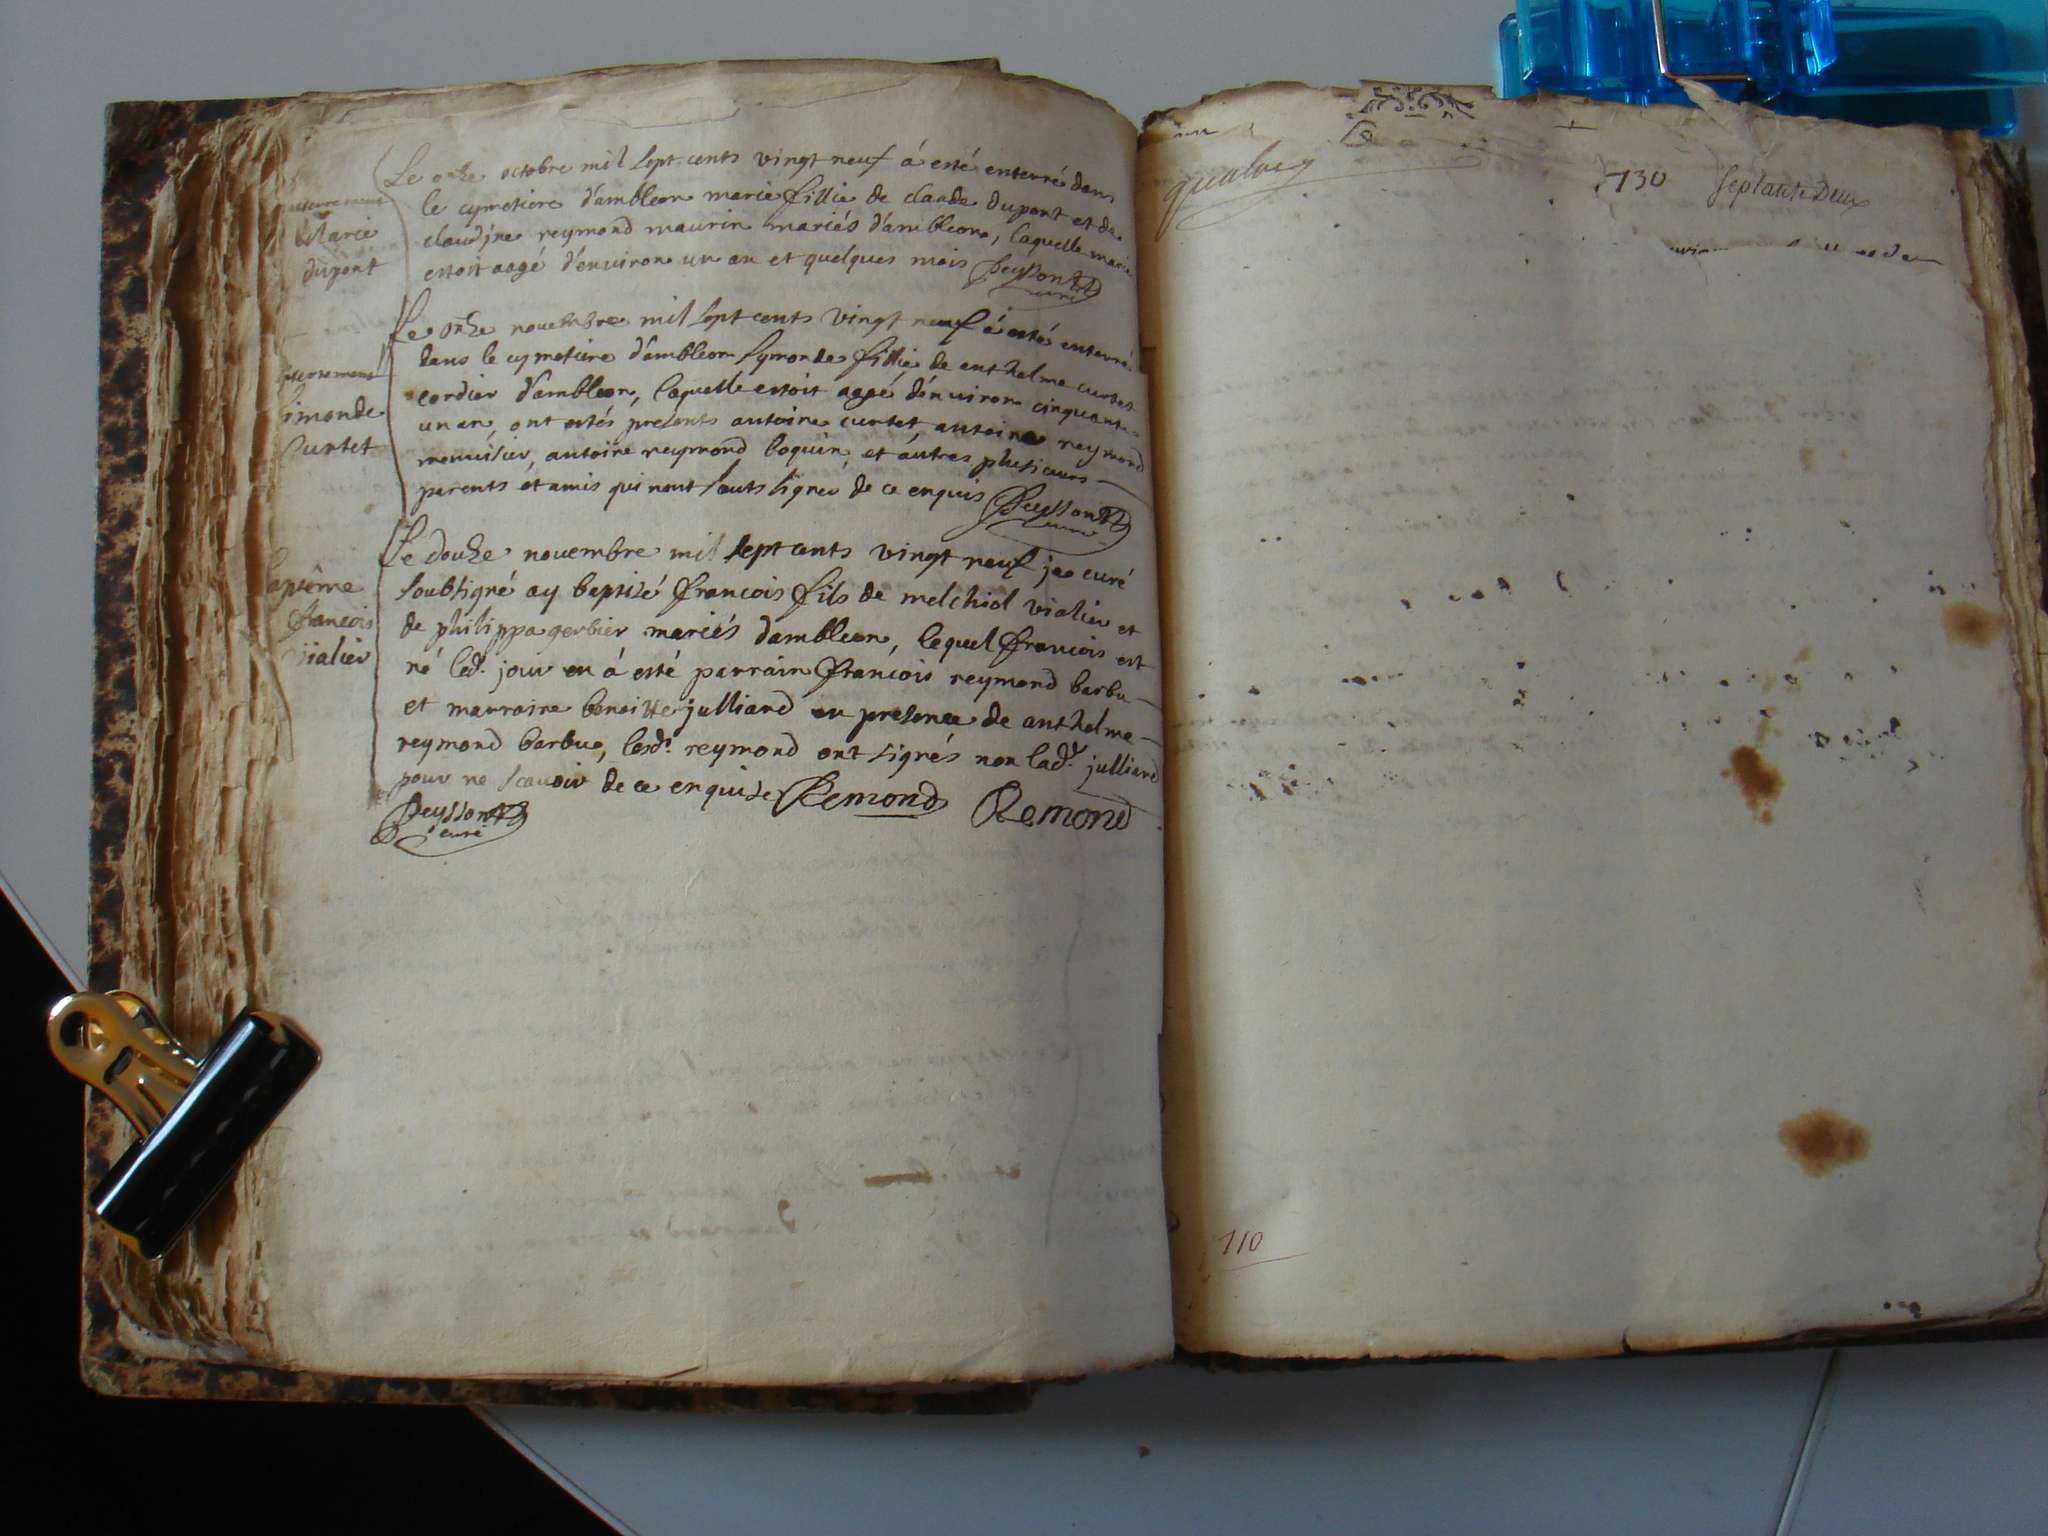 enterrement
Marie
dupont
Le onze octobre mil sept cents vingt neuf á esté enterré dans
le cymetiere d'ambleon marie fillie de claude dupont et de
claudine reymond maurin mariés d'ambleon, laquelle marie
estoit aagé d'environ un an et quelques mois Peysson
curé
enterrement
simonde
Curtet
Le onze novembre mil sept cents vingt neuf á esté enterré
dans le cymetiere d'ambleon symonde fillie de anthelme curtet
cordier d'ambleon, laquelle estoit aagé d'environ cinquante
un an, ont estés presents antoine curtet antoine reymond
menuisier, antoine reymond boquin, et autres plusieurs
parents et amis qui nont sceuts signer de ce enquis Peysson
curé
baptême
francois
vialier
Le douze novembre mil sept cents vingt neuf je curé
soubsigné ay baptisé francois fils de melchiol vialier et
de philippa gerbier mariés d'ambleon, lequel francois est
né led. jour en á esté parrain francois reymond barbu
et marraine benoitte julliand en presence de anthelme
reymond barbu, lesd. reymond ont signés non lad. julliand
pour ne scavoir de ce enquise Remond Remond
Peysson
curé
1730 septante Deux
110